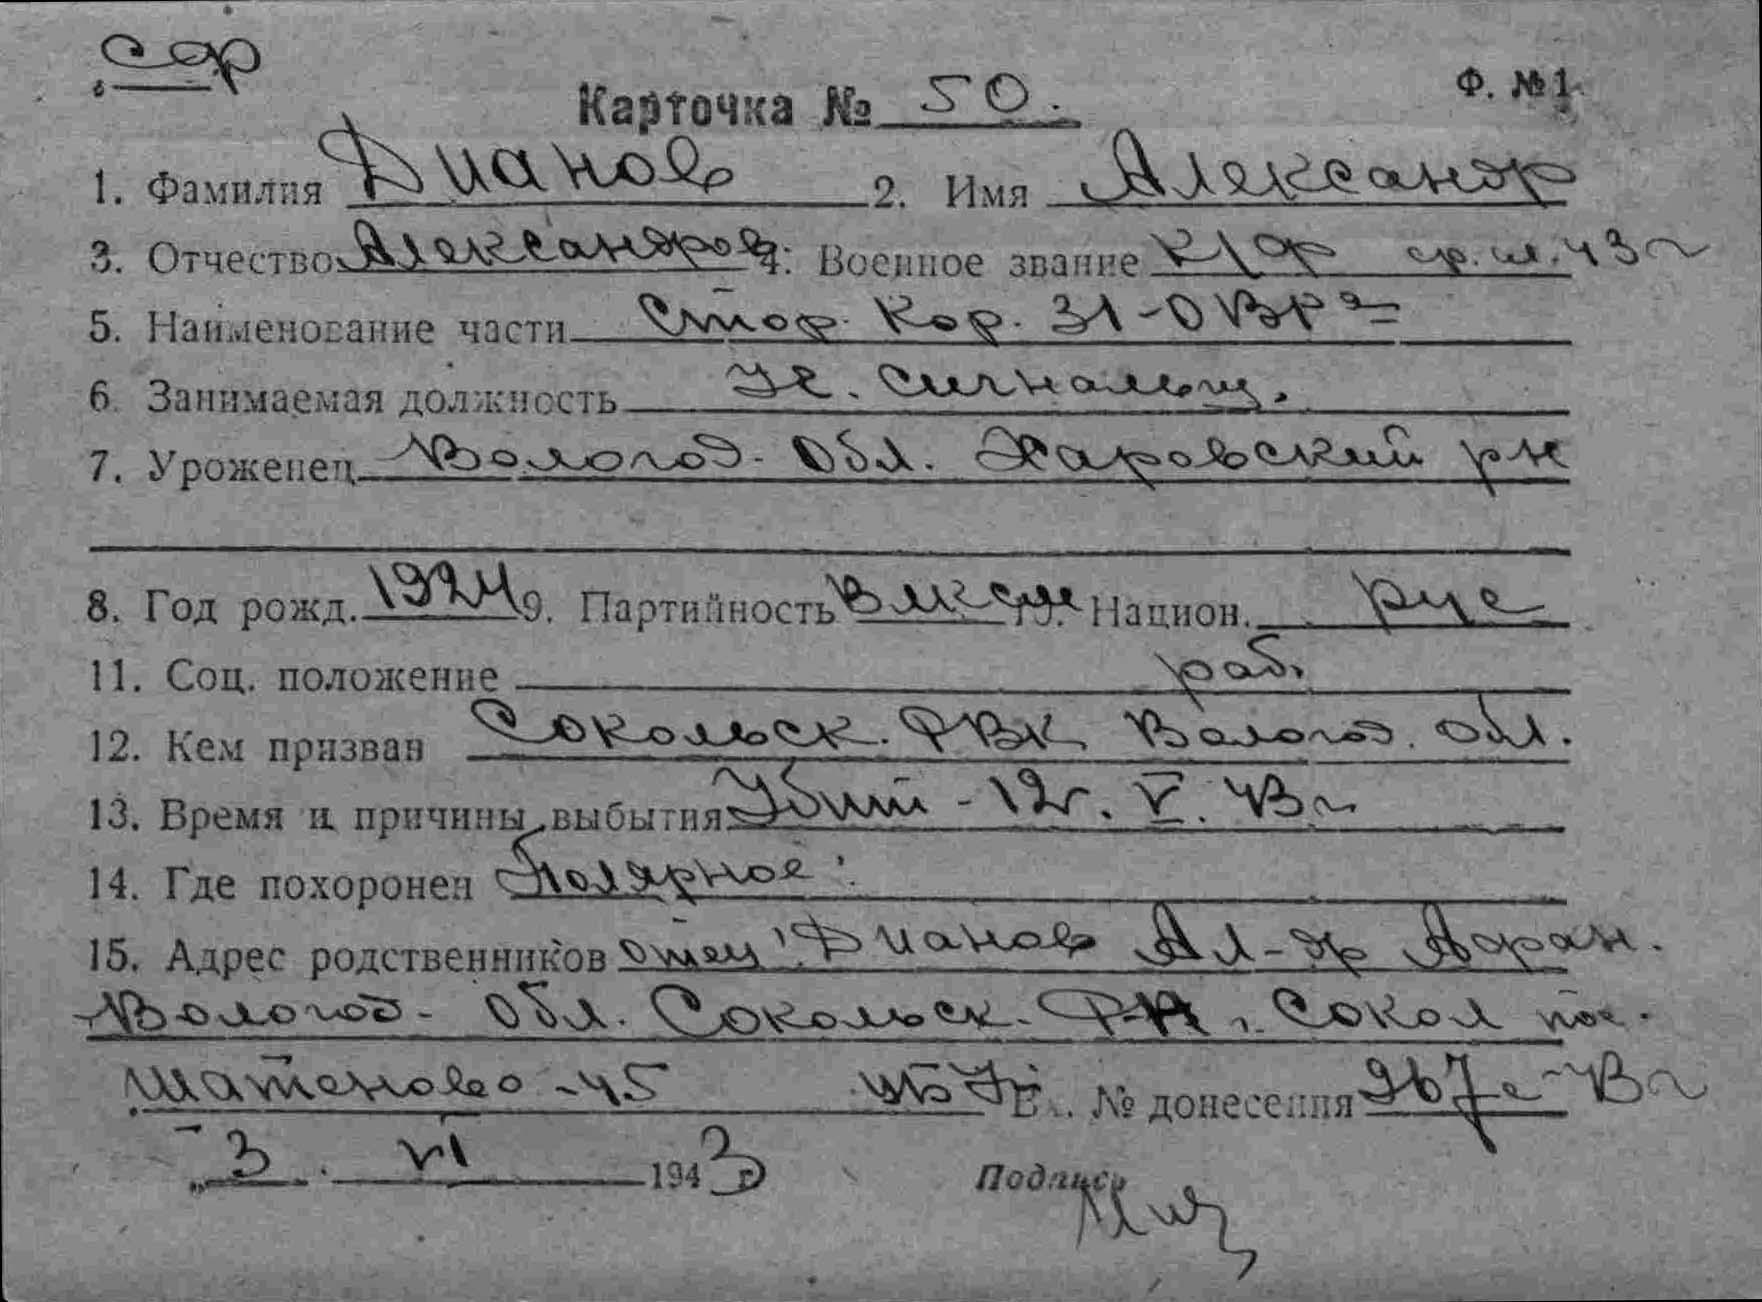 сф
Карточка № 50.
Ф. № 1
1. Фамилия Дианов 2. Имя Александр
3. Отчество Александров 4. Военное звание к/ф ср. сл. 43 г
5. Наименование части Стор. Кор. 31-ОВРа
6. Занимаемая должность Уч. сигнальщ.
7. Уроженец Вологод. Обл. Харовский рн
8. Год рожд. 1924 9. Партийность ВЛКСМ 10. Национ. рус
11. Соц. положение раб.
12. Кем призван Сокольск. РВК Вологод. обл.
13. Время и причины выбытия Убит - 12г. V. 43 г
14. Где похоронен Полярное
15. Адрес родственников отец: Дианов Ал-др Афан.
Вологод. Обл. Сокольск. Р-н, г. Сокол пос.
Шатеново - 45 № донесения 967с-43г
„3. VI 1943 г.
Подпись